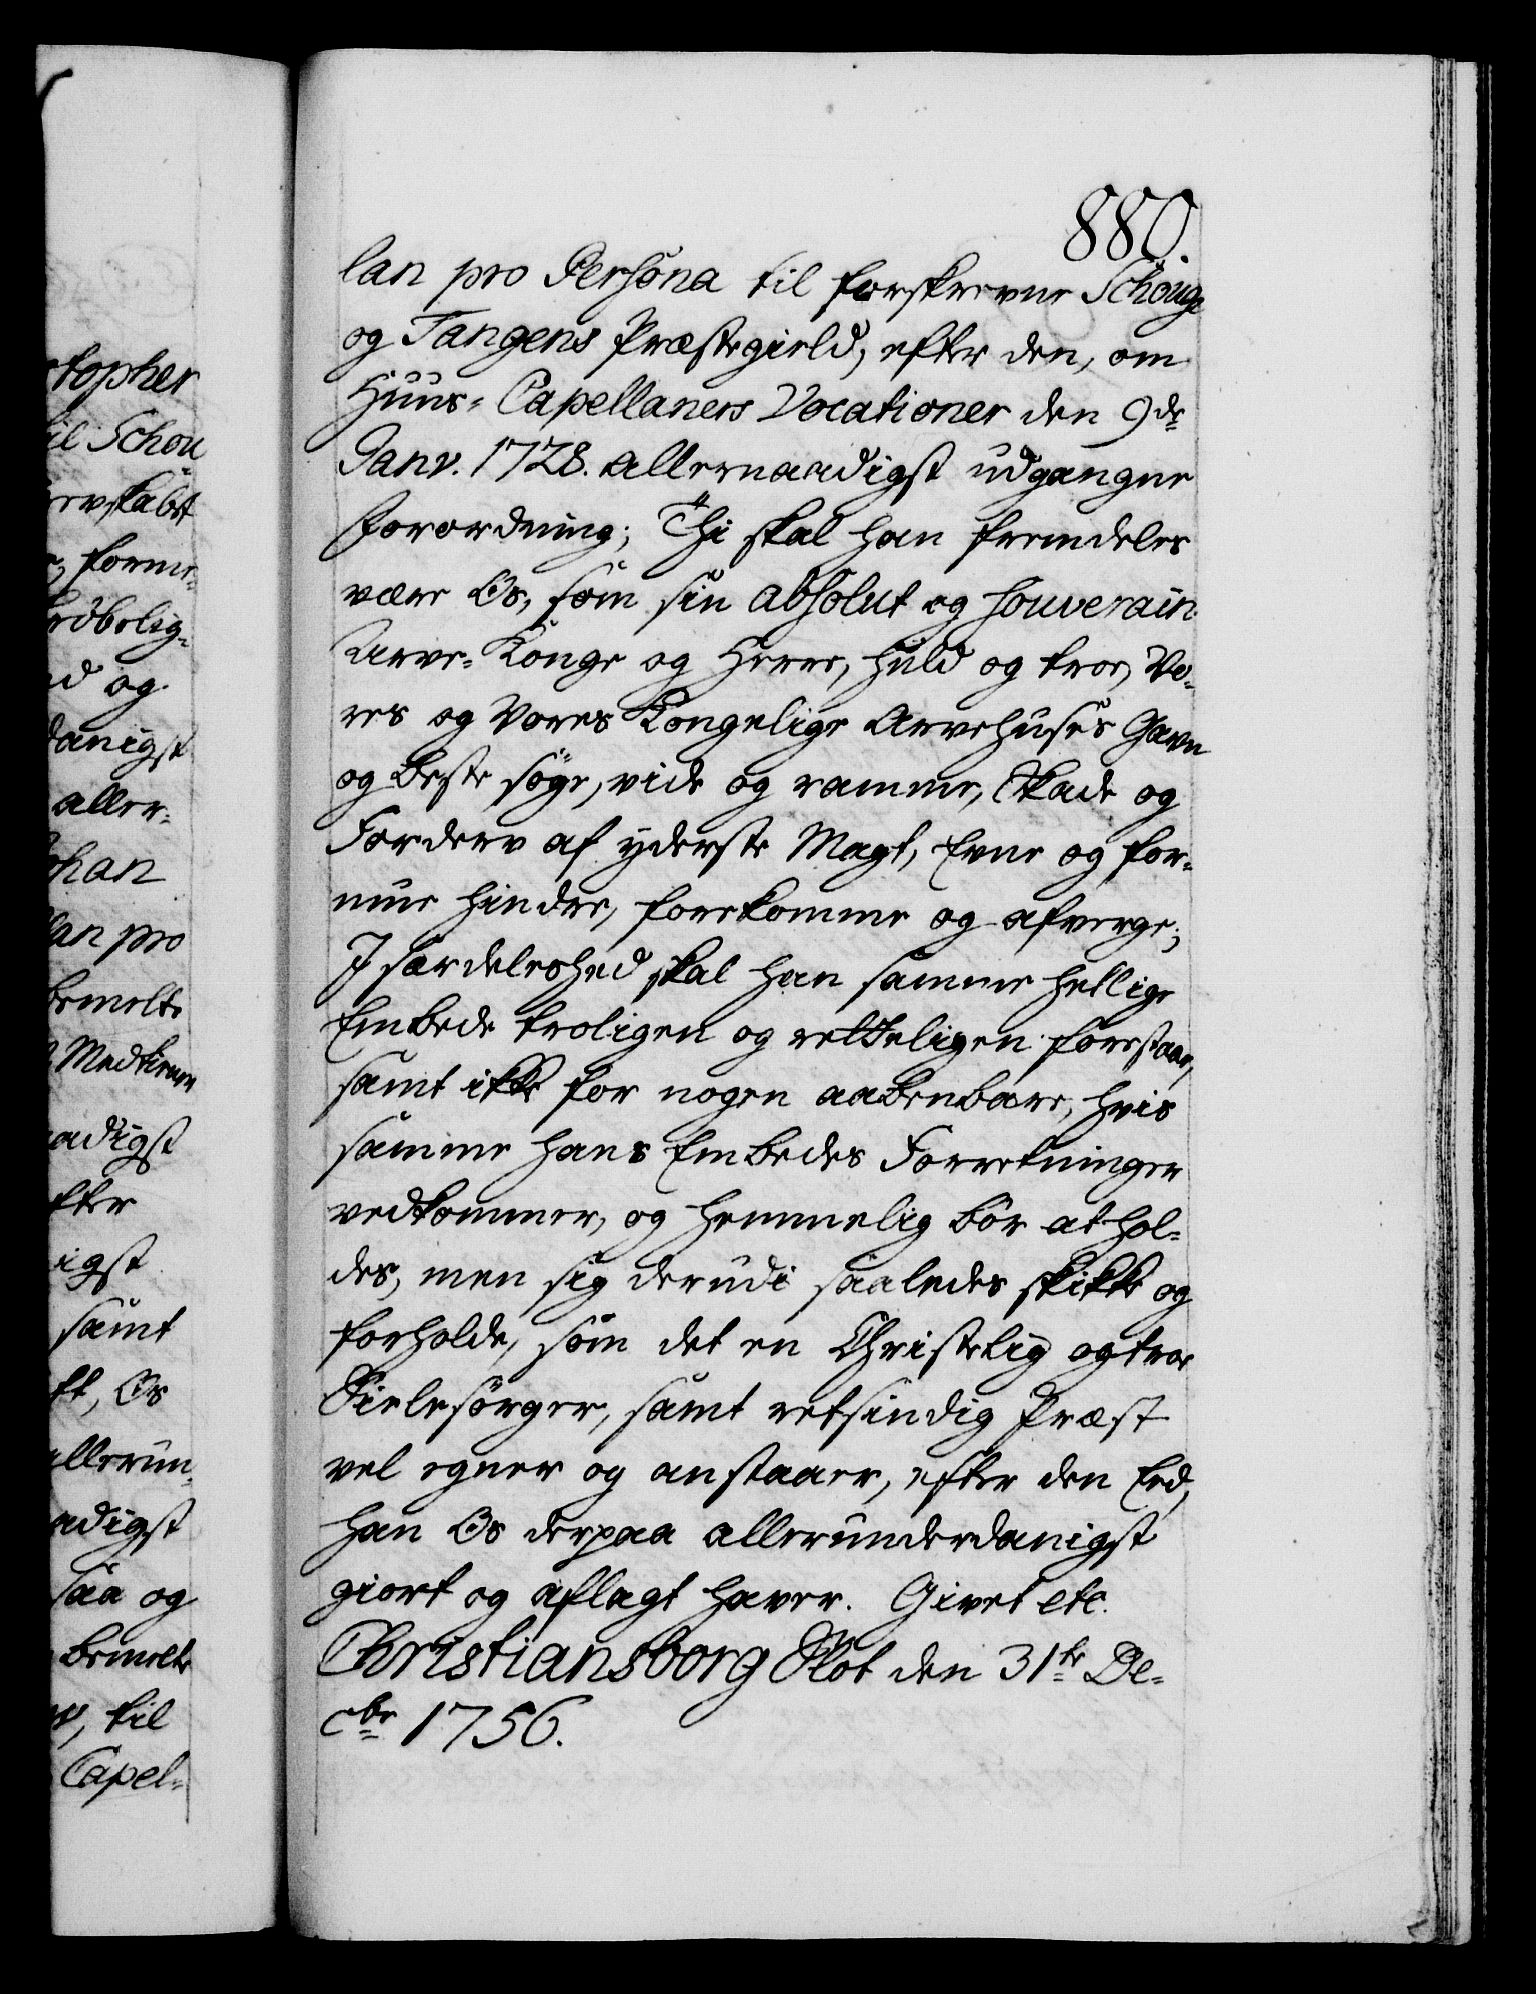 880.
lan pro Persona til forskrevne Schouge
og Tangens Præstegield, efter den, om
Huus- Capellaners Vocationer den 9de
Janv. 1728. allernaadigst udgangne
Forordning; Thi skal han fremdeles
være Os, som sin absolut og souverain
Arve-Konge og Herre, huld og troe, Vo-
res og Vores Kongelige Arvehuses Gavn
og beste søge, vide og ramme, Skade og
Forderv af yderste Magt, Evne og for-
mue hindre, forekomme og afverge;
I særdeleshed skal han samme hellige
Embede troligen og retteligen forestaae,
samt ikke for nogen aabenbare, hvis
samme hans Embedes Forretninger
vedkommer, og hemmelig bør at hol-
des, men sig derudi saaledes skikke og
forholde, som det en Christelig og troe
Sielesørger, samt retsindig Præst
vel egner og anstaaer, efter den Eed,
han Os derpaa allerunderdanigst
giort og aflagt haver. Givet etc.
Christiansborg Slot den 31te De-
cbr 1756.
topher
til Schou
aller-
han
lan pro
bemelte
aadigst
efter
igst
samt
Os
allerun-
aadigst
saa og
bemelte
til
Capel-